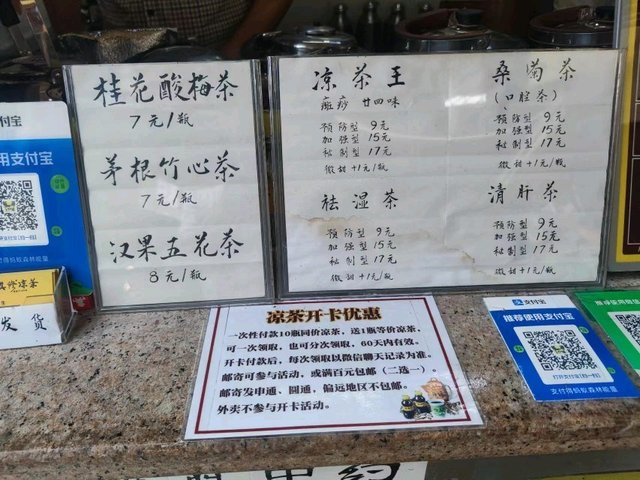 桂花酸梅茶
7元/瓶
茅根竹心茶
7元/瓶
汉果五花茶
8元/瓶
凉茶王
癍痧 廿四味
预防型 9元
加强型 15元
秘制型 17元
微甜+1元/瓶
桑菊茶
(口腔茶)
预防型 9元
加强型 15元
秘制型 17元
微甜+1元/瓶
祛湿茶
预防型 9元
加强型 15元
秘制型 17元
微甜+1元/瓶
清肝茶
预防型 9元
加强型 15元
秘制型 17元
微甜+1元/瓶
凉茶开卡优惠
一次性付款10瓶同价凉茶,送1瓶等价凉茶,
可一次领取,也可分次领取,60天内有效。
开卡付款后,每次领取以微信聊天记录为准。
邮寄可参与活动,或满百元包邮(二选一)
邮寄发申通、圆通,偏远地区不包邮。
外卖不参与开卡活动。
付宝
用支付宝
凉茶
发货
支付宝
推荐使用支付宝
打开支付宝[扫一扫]
支付得蚂蚁森林能量
推荐使用